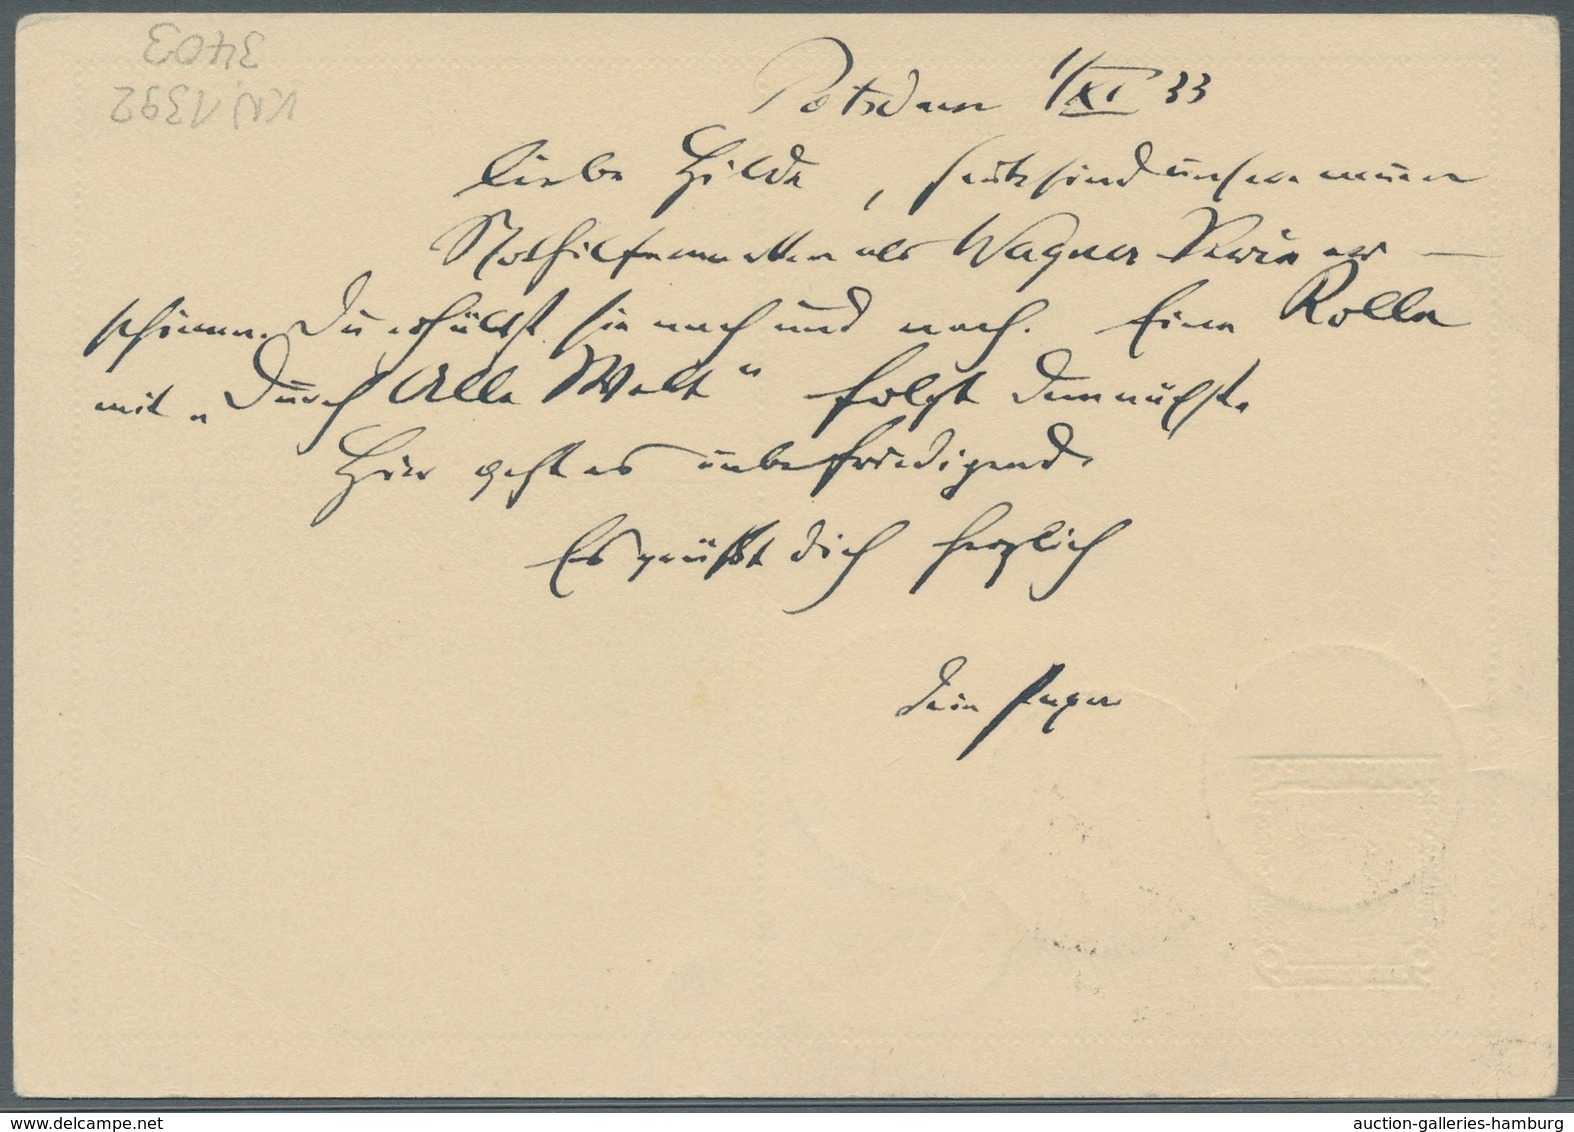 3403
KW 1392
Potsdam 1/XI 33
Liebe Hilde, heute sind unsere neuen
Nothilfemarken als Wagner Serie er-
schienen. Du erhältst sie nach und nach. Eine Rolle
mit „Durch Alle Welt" folgt demnächst.
Hier geht es unbefriedigend.
Es grüßt dich herzlich
Dein
auction-galleries-hamburg